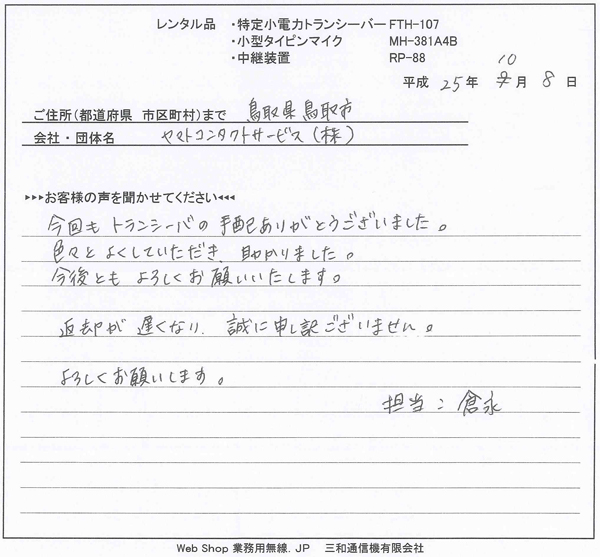 レンタル品 ・特定小電力トランシーバー FTH-107
・小型タイピンマイク MH-381A4B
・中継装置 RP-88
平成 25 年 10 月 8 日
ご住所(都道府県 市区町村)まで 鳥取県鳥取市
会社・団体名 ヤマトコンタクトサービス(株)
▶▶▶お客様の声を聞かせてください◀◀◀
今回も トランシーバの手配ありがとうございました。
色々と よくしていただき、助かりました。
今後とも よろしくお願いいたします。
返却が 遅くなり、誠に申し訳ございません。
よろしくお願いします。
担当:倉永
Web Shop 業務用無線.JP 三和通信機有限会社